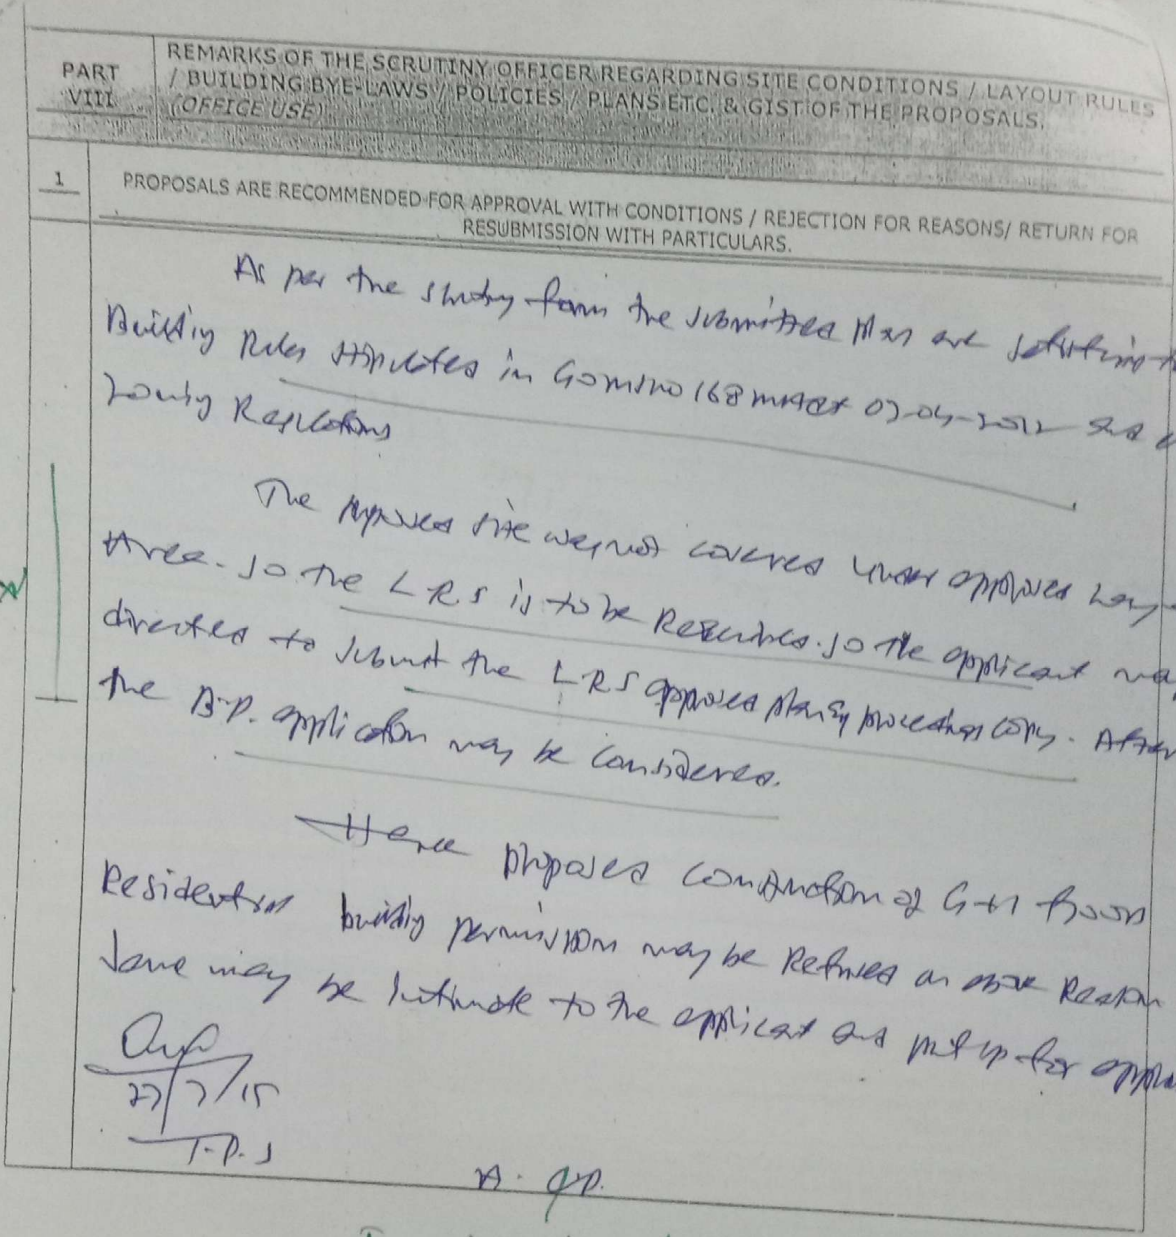 PART VIII
REMARKS OF THE SCRUTINY OFFICER REGARDING SITE CONDITIONS / LAYOUT RULES
/ BUILDING BYE-LAWS / POLICIES / PLANS ETC. & GIST OF THE PROPOSALS.
(OFFICE USE)
1
PROPOSALS ARE RECOMMENDED FOR APPROVAL WITH CONDITIONS / REJECTION FOR REASONS/ RETURN FOR
RESUBMISSION WITH PARTICULARS.
As per the the submitted plan are
Building Rules in G.O.Ms.No 168 07-04-2012 and
Zoning Regulations
The proposed site was not covered under approved Lay
Area. So the LRS is to be Required. So the applicant may
directed to submit the LRS approved plan & proceedings copy. After
the B.P. application may be considered.
Hence proposed construction of G+1 floors
Residential building permission may be Refused on above Reason
Same may be Intimate to the applicant and put up for
27/7/15
T.P.S